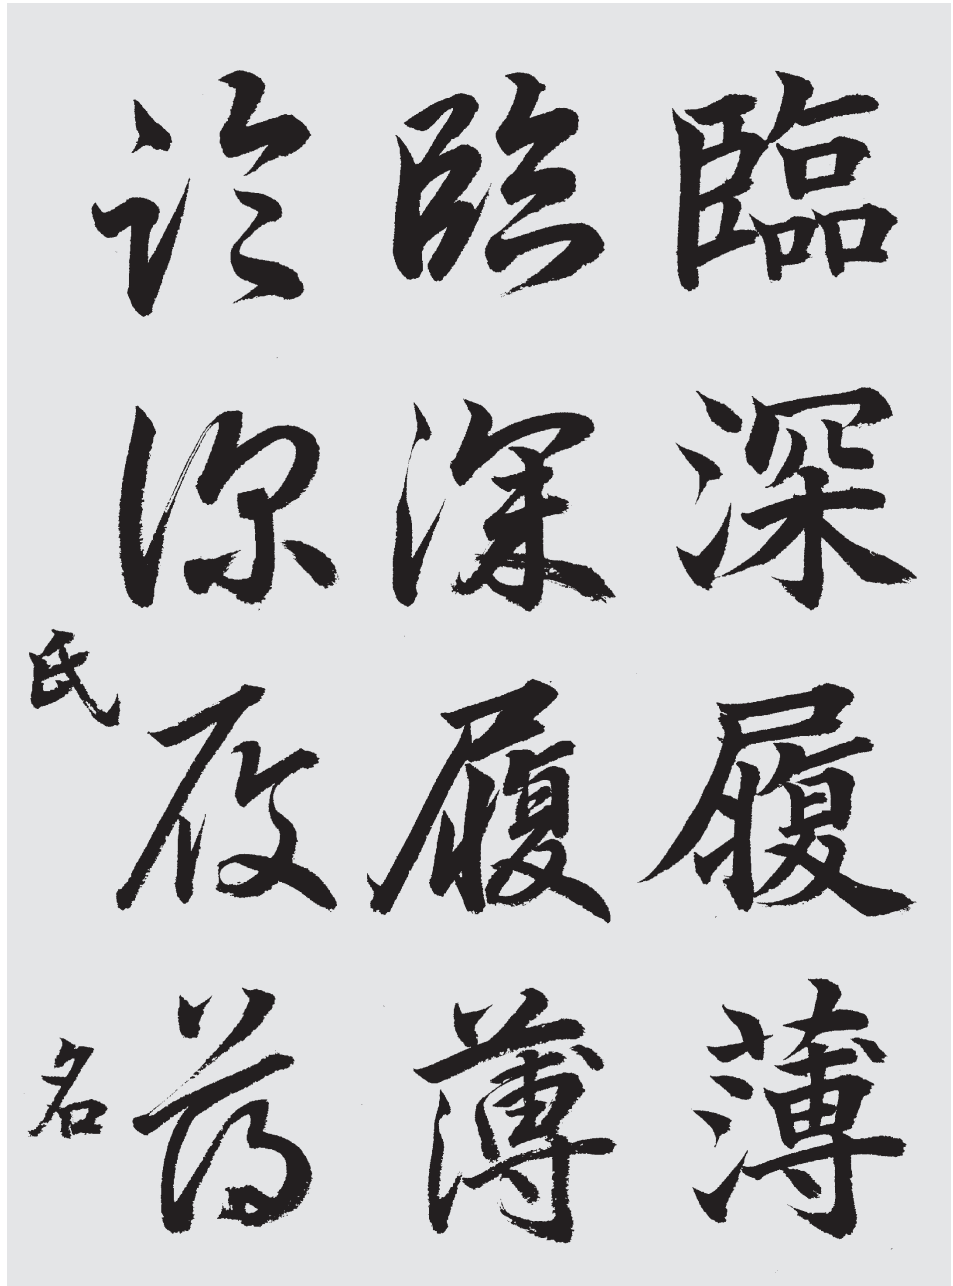 臨深履薄
臨深履薄
臨深履薄
氏名